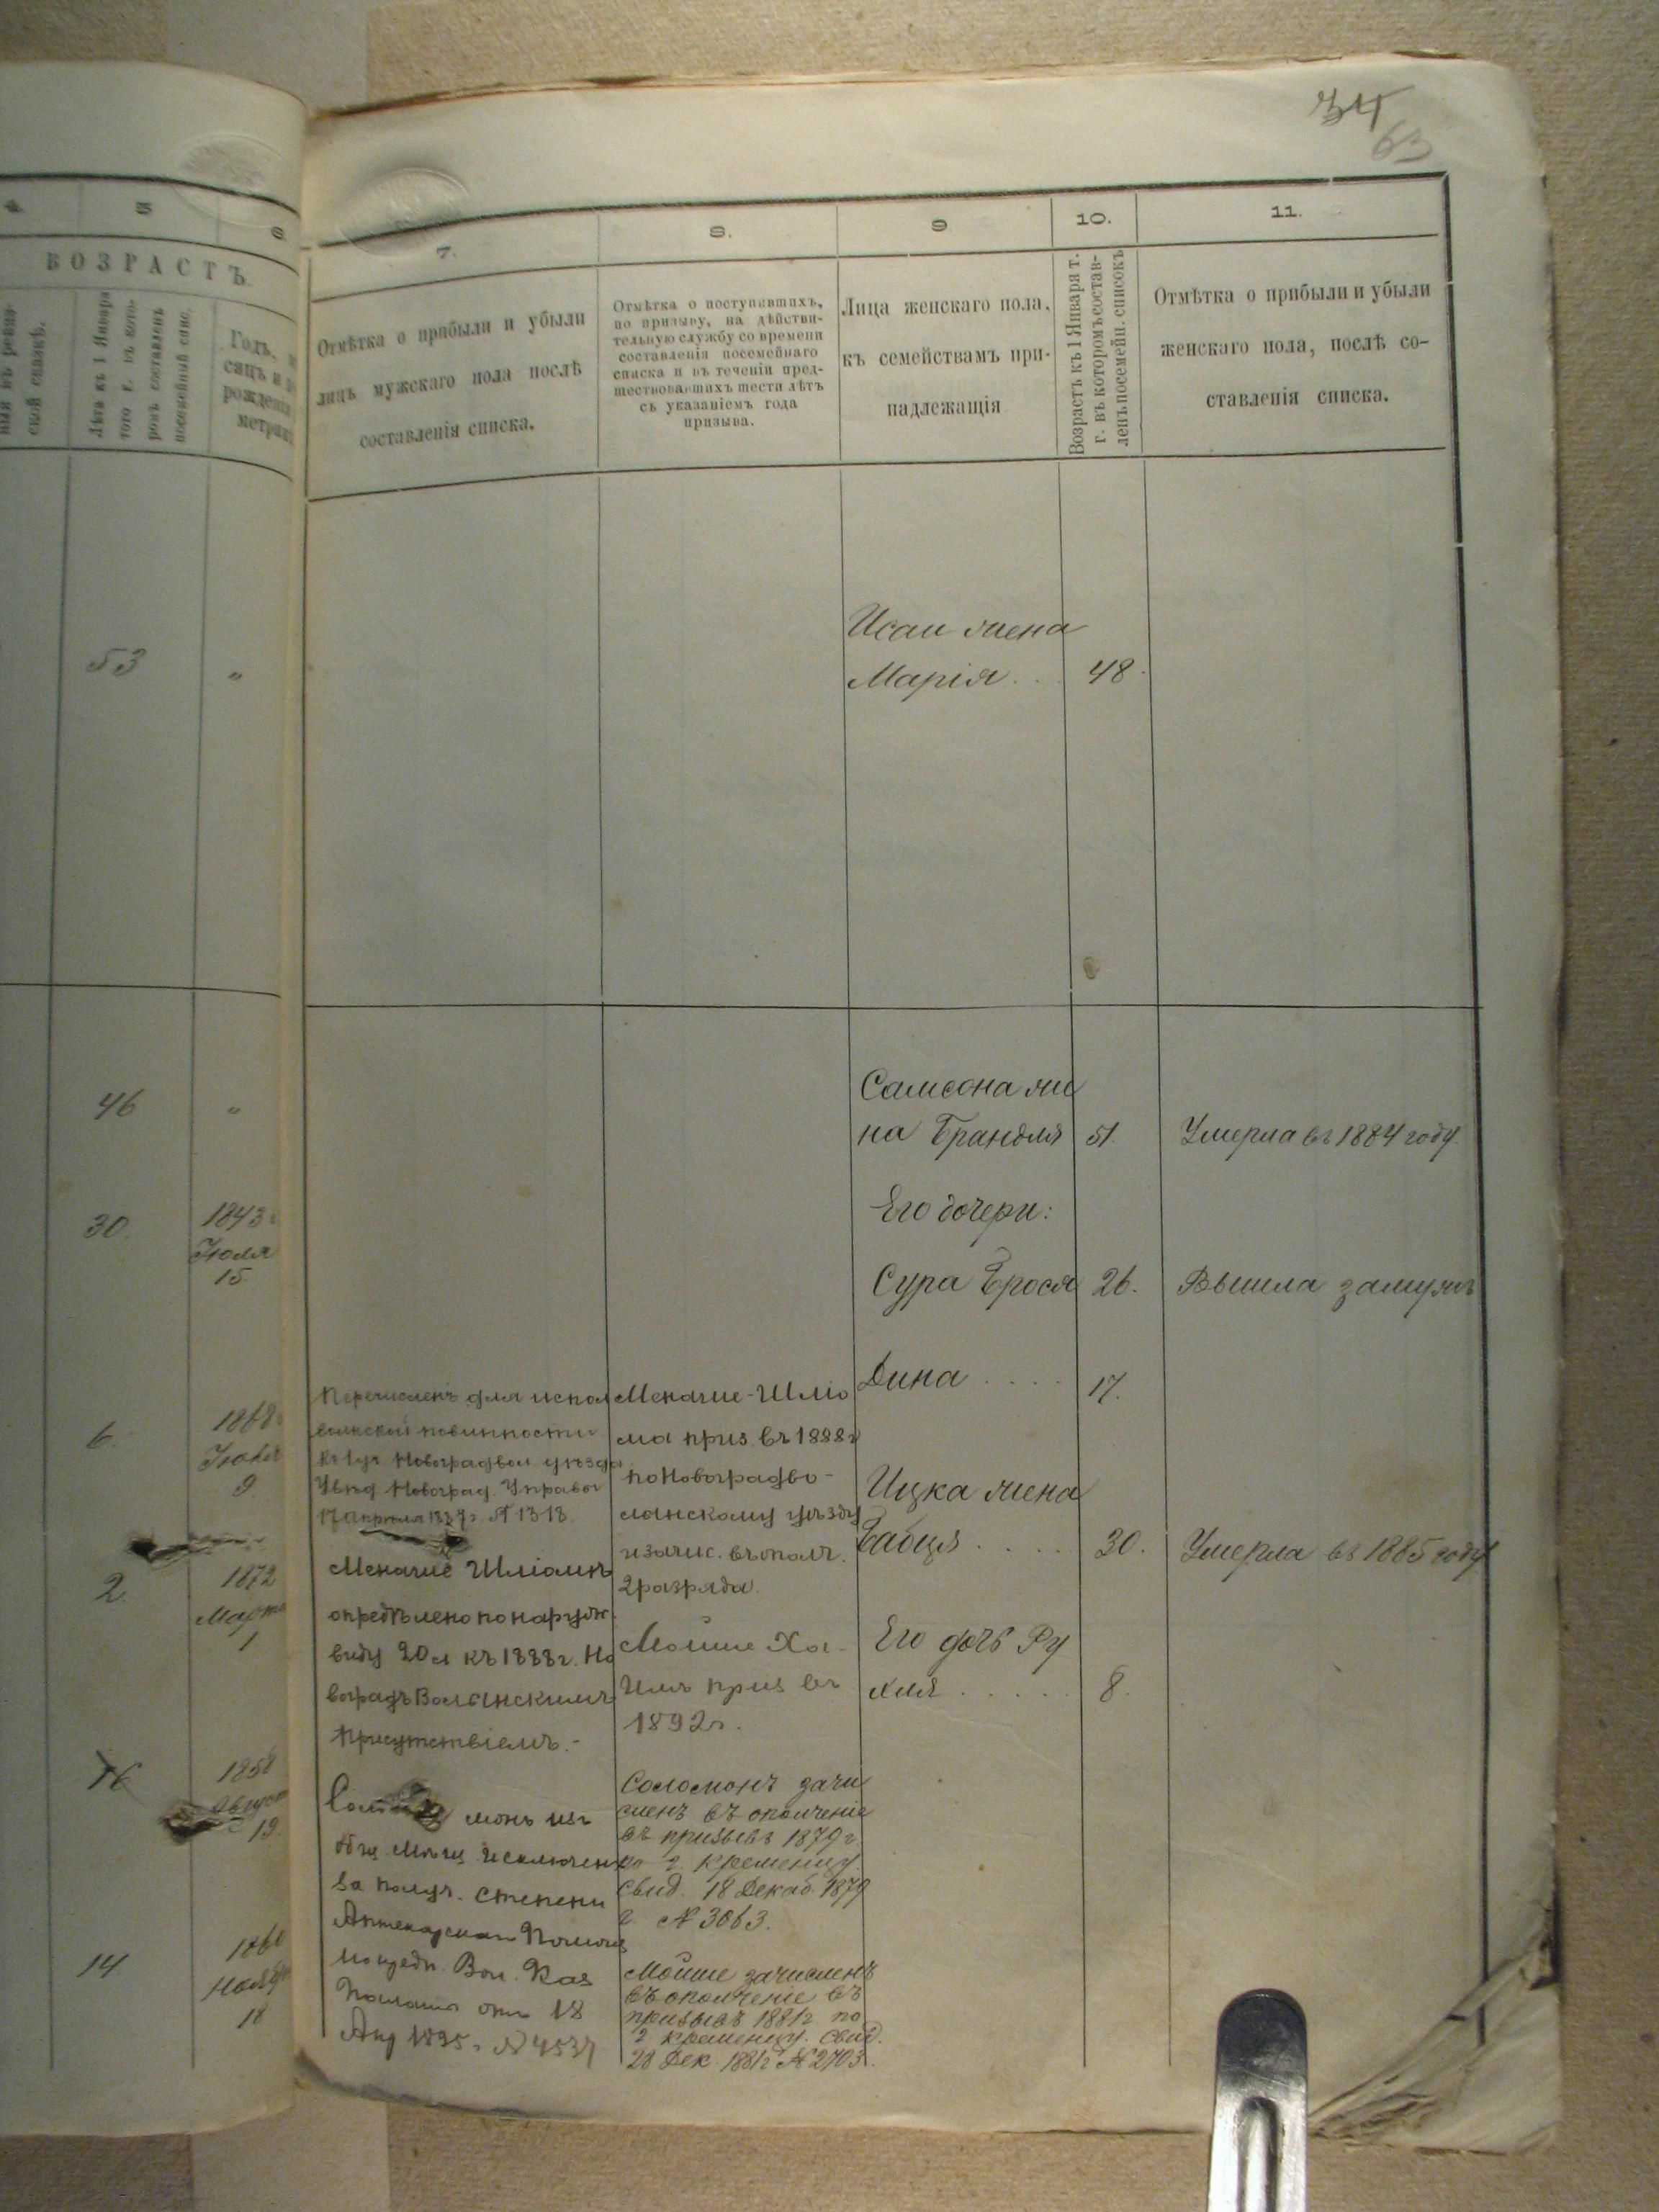 34
63
4
5
6.
7.
8.
9
10.
11.
ВОЗРАСТЪ
ской сказкѣ.
Лѣта къ 1 Января
того г. въ кото-
ромъ составленъ
посемейный спис.
Годъ,
сяцъ и
рожденія
метрик
Отмѣтка о прибыли и убыли
лицъ мужскаго пола послѣ
составленія списка.
Отмѣтка о поступившихъ,
по призыву, на дѣйстви-
тельную службу со времени
составленія посемейнаго
списка и въ теченіи пред-
шествовавшихъ шести лѣтъ
съ указаніемъ года
призыва.
Лица женскаго пола,
къ семействамъ при-
надлежащія
Возрастъ къ 1 Января т.
г. въ которомъ состав-
ленъ посемейн. списокъ
Отмѣтка о прибыли и убыли
женскаго пола, послѣ со-
ставленія списка.
53
Исаи жена
Марія . . 48.
46
Самсона же
на Брандля 51. Умерла въ 1884 году.
30.
1843 г
Іюля
15.
Его дочери:
Сура Брося 26. Вышла замужъ
Дина . . . . 17.
6.
1868
9
2.
1872
Марта
1
16
1858
Август
19.
14
1860
Ноября
18
Перечисленъ для испол
воинской повинности
Новоградвол уѣзда
Новоград. Управы
17 апреля 1887 г. № 1318.
Менаше Шліомъ
опредѣлено по наруж.
виду 20 л къ 1888 г. Но
воградъ Волынскимъ
Присутствіемъ.-
монъ изъ
общ. мѣщ. исключенъ
за получ. степени
Аптекарскаго Помощ
Вол. Каз
Палаты отъ 18
1895 г. № 4537
Менаше-Шліо
ма приз. въ 1888 г
по Новоградво-
лынскому уѣзду
и зачис. въ ополч.
2 разряда.
Мойше Ха-
имъ приз въ
1892 г.
Соломонъ зачи
сленъ въ ополченіе
въ призывъ 1879 г.
по г. Кременцу.
Свид. 18 Декаб. 1879
г. № 3063.
Мойше зачисленъ
въ ополченіе въ
призывъ 1881 г. по
г Кременцу. Свид.
28 Дек. 1881 г № 2703.
Ицка жена
Бабця . . . . 30. Умерла въ 1885 году
Его дочь Ру
хля . . . . . 8.